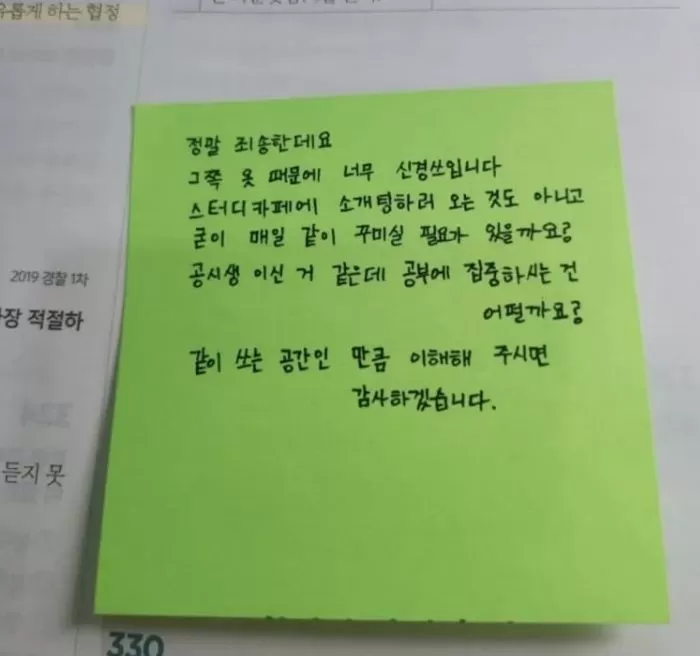 유롭게 하는 협정
정말 죄송한데요
그쪽 옷 때문에 너무 신경쓰입니다
스터디카페에 소개팅하러 오는 것도 아니고
굳이 매일 같이 꾸미실 필요가 있을까요?
공시생 이신 거 같은데 공부에 집중하시는 건
어떨까요?
같이 쓰는 공간인 만큼 이해해 주시면
감사하겠습니다.
2019 경찰 1차
장 적절하
듣지 못
330